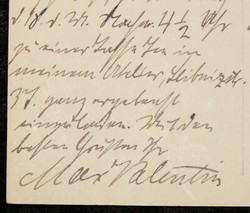 d. J. d. Mt. Nachm. 4 1/2 Uhr
zu einer Tasse Tee in
meinem Atelier, Leibnizstr.
3I. ganz ergebenst
einzuladen. Mit den
besten Grüßen Ihr
Max Valentin